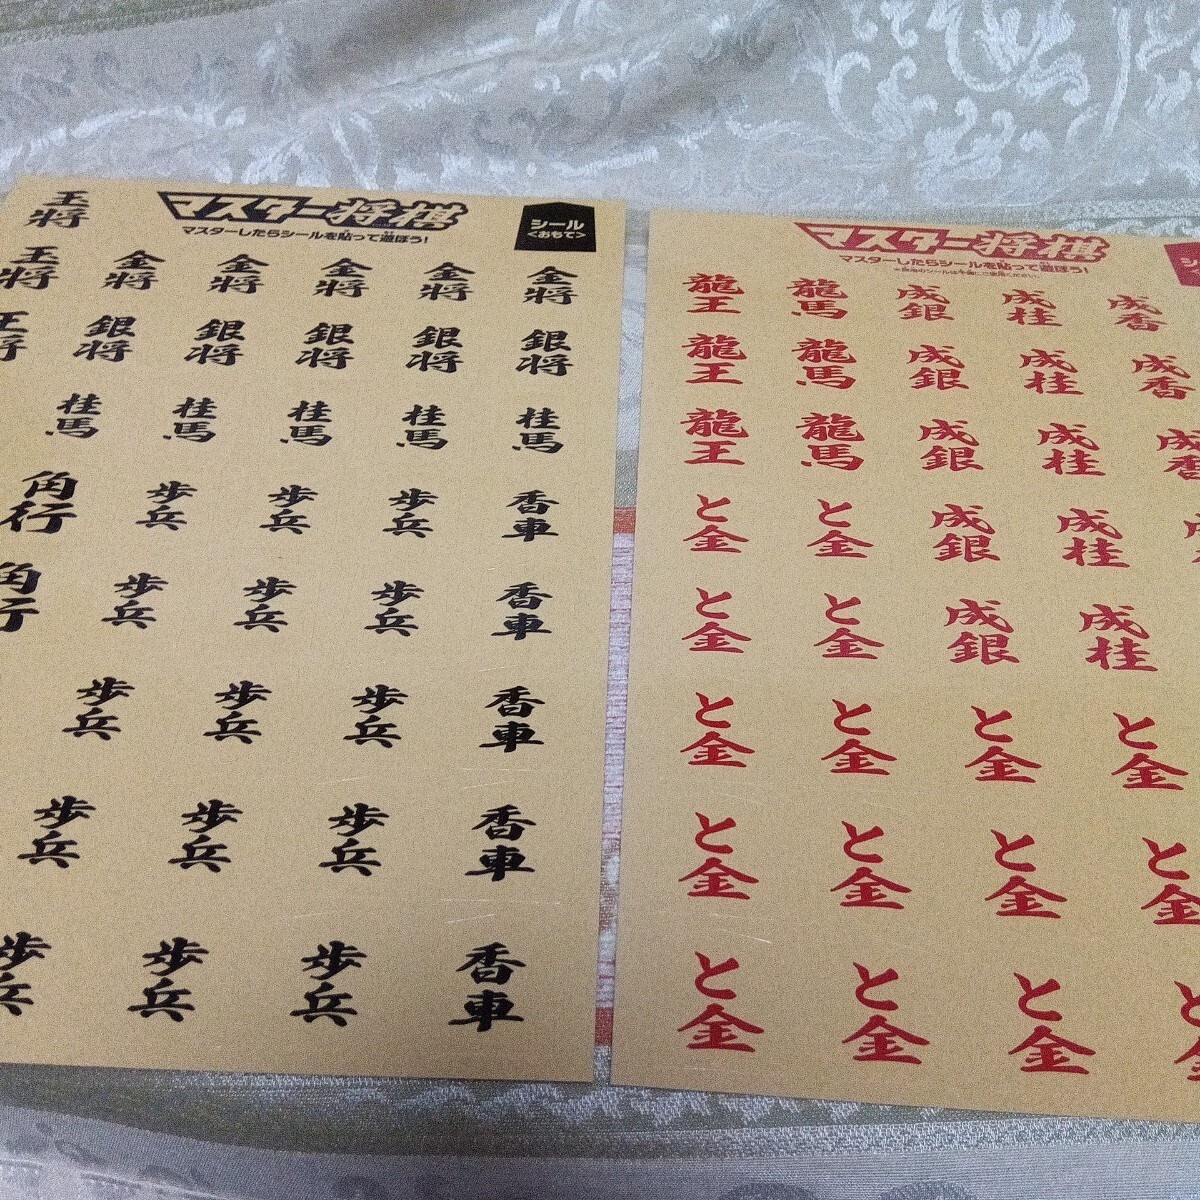 王将
マスター将棋
マスターしたらシールを貼って遊ぼう!
シール
<おもて>
王将 金将 金将 金将 金将 金将
王将 銀将 銀将 銀将 銀将 銀将
桂馬 桂馬 桂馬 桂馬 桂馬
角行 歩兵 歩兵 歩兵 香車
角行 歩兵 歩兵 歩兵 香車
歩兵 歩兵 歩兵 香車
歩兵 歩兵 歩兵 香車
歩兵 歩兵 歩兵 香車
マスター将棋
マスターしたらシールを貼って遊ぼう!
龍王 龍馬 成銀 成桂 成香
龍王 龍馬 成銀 成桂 成香
龍王 龍馬 成銀 成桂 成香
と金 と金 成銀 成桂
と金 と金 成銀 成桂
と金 と金 と金 と金
と金 と金 と金 と金
と金 と金 と金